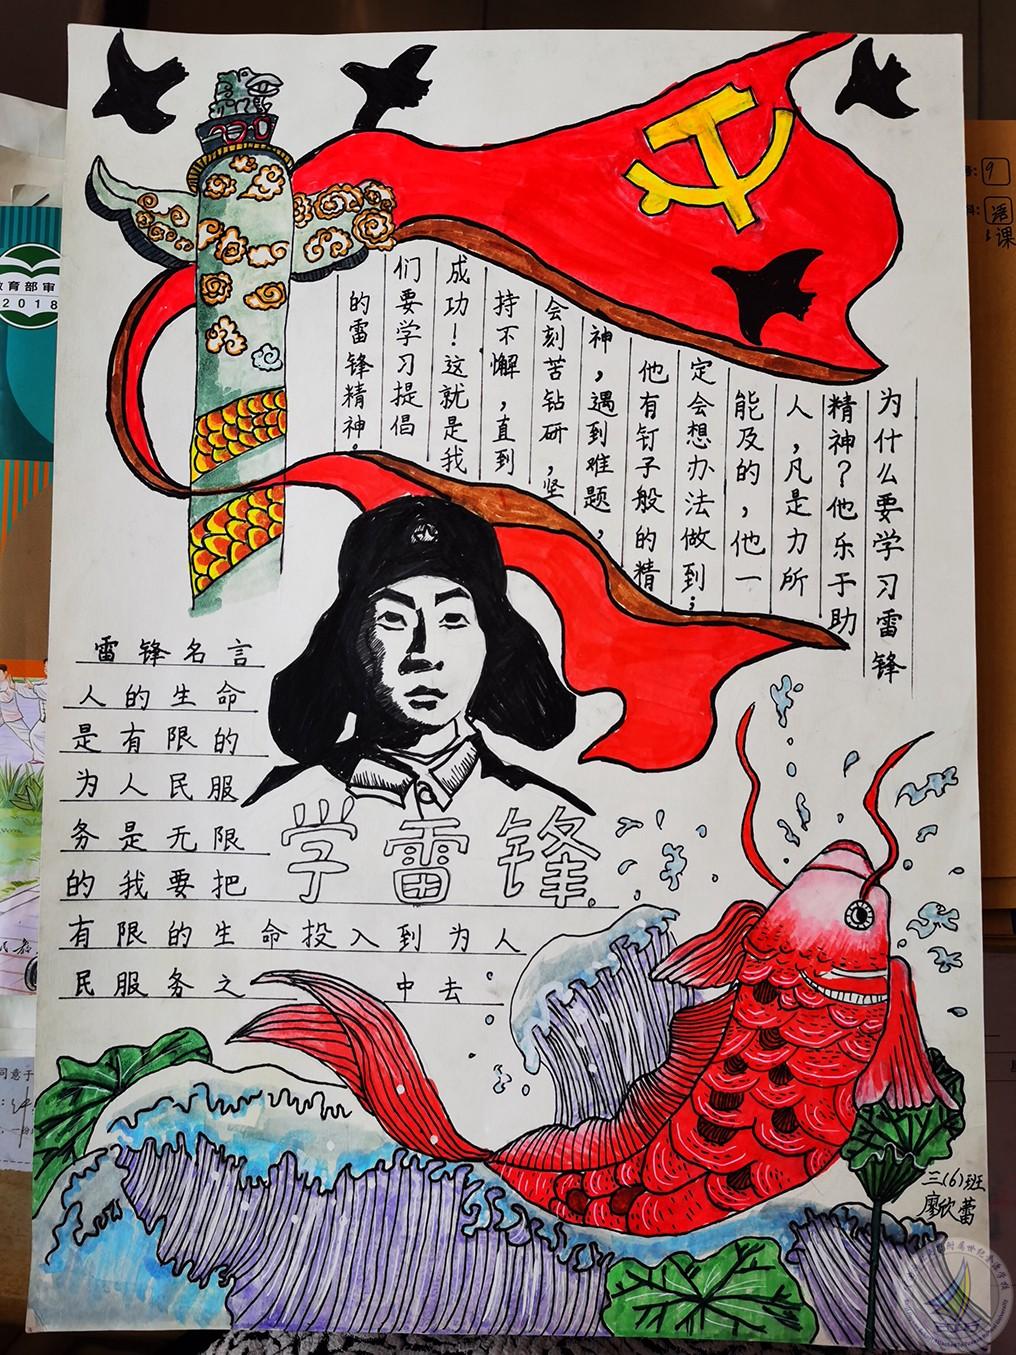 为什么要学习雷锋
精神？他乐于助
人，凡是力所
能及的，他一
定会想办法做到；
他有钉子般的精
神，遇到难题，
会刻苦钻研，坚
持不懈，直到
成功！这就是我
们要学习提倡
的雷锋精神。
雷锋名言
人的生命
是有限的
为人民服
务是无限
的我要把
有限的生命投入到为人
民服务之中去。
学雷锋
三(6)班
廖欣蕾
教育部审
2018
同意于
9